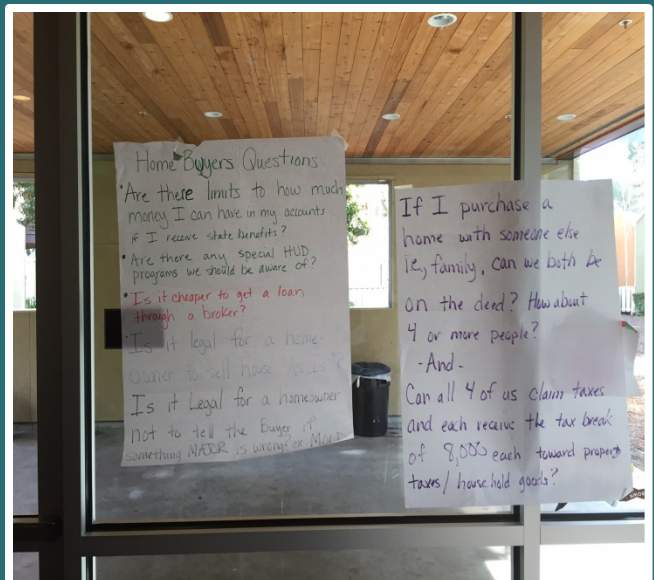 Home Buyers Questions.
• Are there limits to how much
money I can have in my accounts
if I receive state benefits?
• Are there any special HUD
programs we should be aware of?
• Is it cheaper to get a loan
through a broker?
• Is it legal for a home-
owner to sell house As Is?
Is it Legal for a homeowner
not to tell the Buyer if
something MAJOR is wrong? ex Mold
If I purchase a
home with someone else
i.e, family, can we both be
on the deed? How about
4 or more people?
- And -
Can all 4 of us claim taxes
and each receive the tax break
of 8,000 each toward property
taxes / household goods?